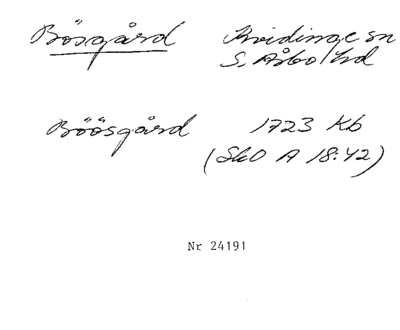 Bösgård Kvidinge sn
S. Åsbo hd
Böösgård 1723 Kb
(SkO A 18:42)
Nr 24191